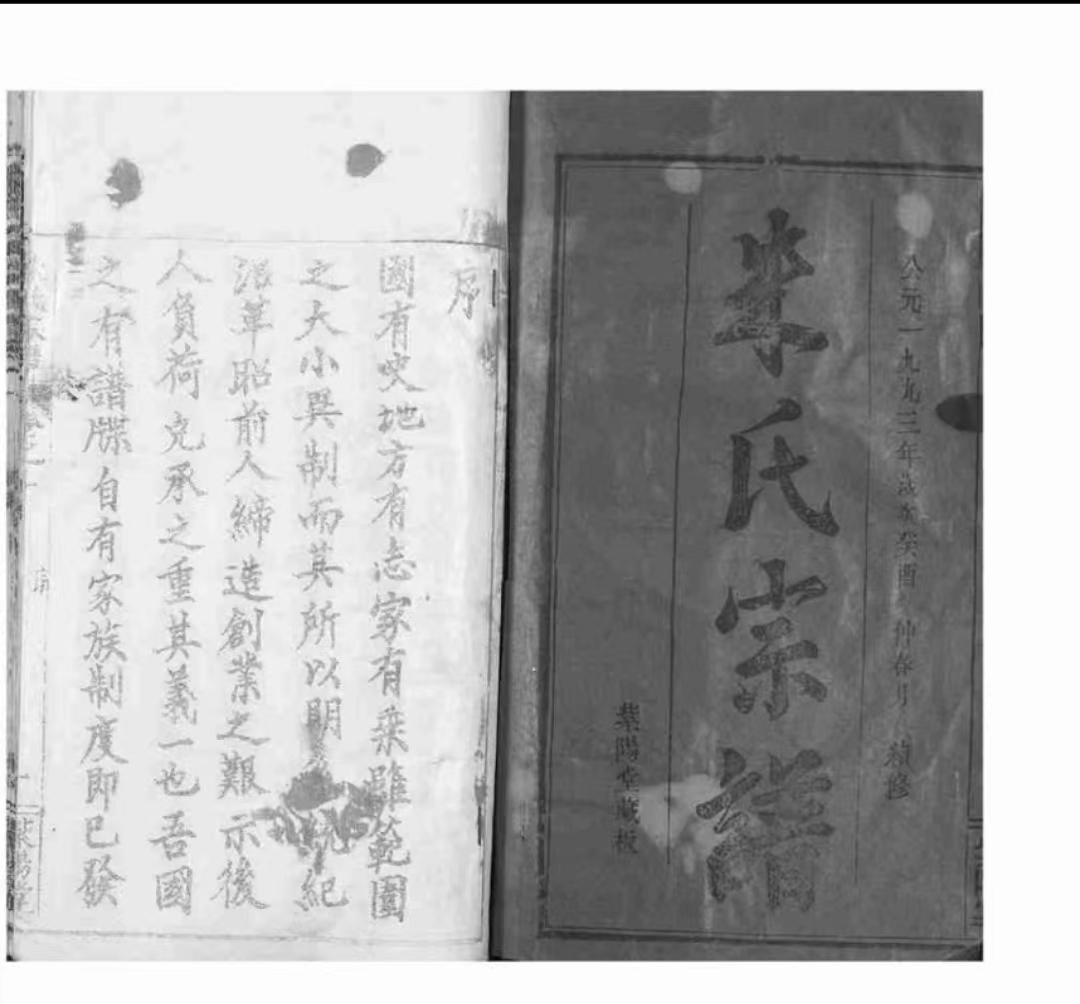 公元一九九三年歲次癸酉仲春月 續修
李氏宗譜
紫陽堂藏板
序
國有史地方有志家有乘雖範圍
之大小異制而其所以明統紀
沿革昭前人締造創業之艱示後
人負荷克承之重其義一也吾國
之有譜牒自有家族制度即已發
卷之一
序
紫陽堂